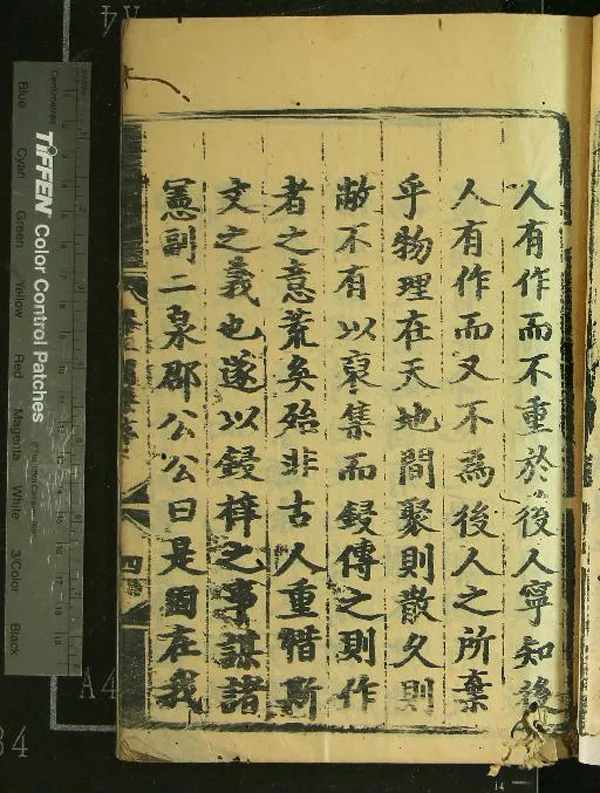 人有作而不重於後人寧知後
人有作而又不為後人之所棄
乎物理在天地間聚則散久則
敝不有以裒集而鋟傳之則作
者之意荒矣殆非古人重惜斯
文之義也遂以鋟梓之事謀諸
憲副二泉邵公公曰是固在我
四
TIFFEN Color Control Patches
Centimetres
Blue
Cyan
Green
Yellow
Red
Magenta
White
3/Color
Black
A4
A4
14